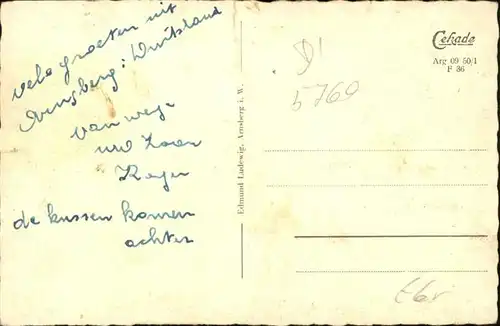 vele groeten uit
Arnsberg: Duitsland
van wege
uw zoon
Roger
de kussen komen
achter
Edmund Ludewig, Arnsberg i. W.
Cekade
Arg 09 50/1
F 36
D'
5760